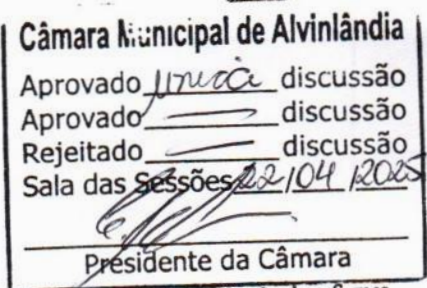 Câmara Municipal de Alvinlândia
Aprovado única discussão
Aprovado — discussão
Rejeitado — discussão
Sala das Sessões 22/04/2025
Presidente da Câmara